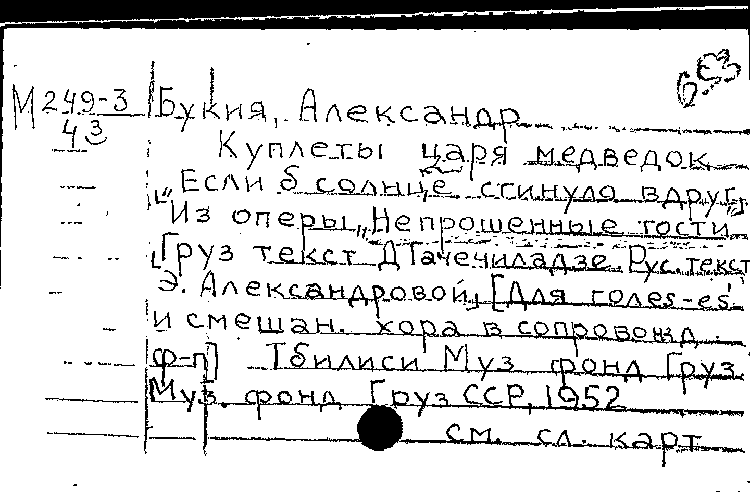 М 249-3 Букия, Александр
43 Куплеты царя медведок
„Если б солнце сгинуло вдруг"
Из оперы „Непрошенные гости
[Груз текст Д Гачечиладзе. Рус. текст
Э. Александровой] [Для голеs-es'
и смешан. хора в сопровожд.
ф-п] Тбилиси Муз фонд Груз.
Муз. фонд Груз ССР, 1952
см. сл. карт